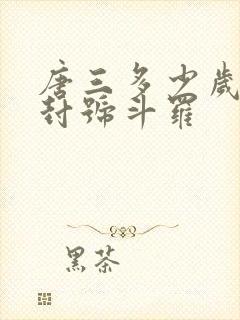 唐三多少歲
封號斗羅
黑茶